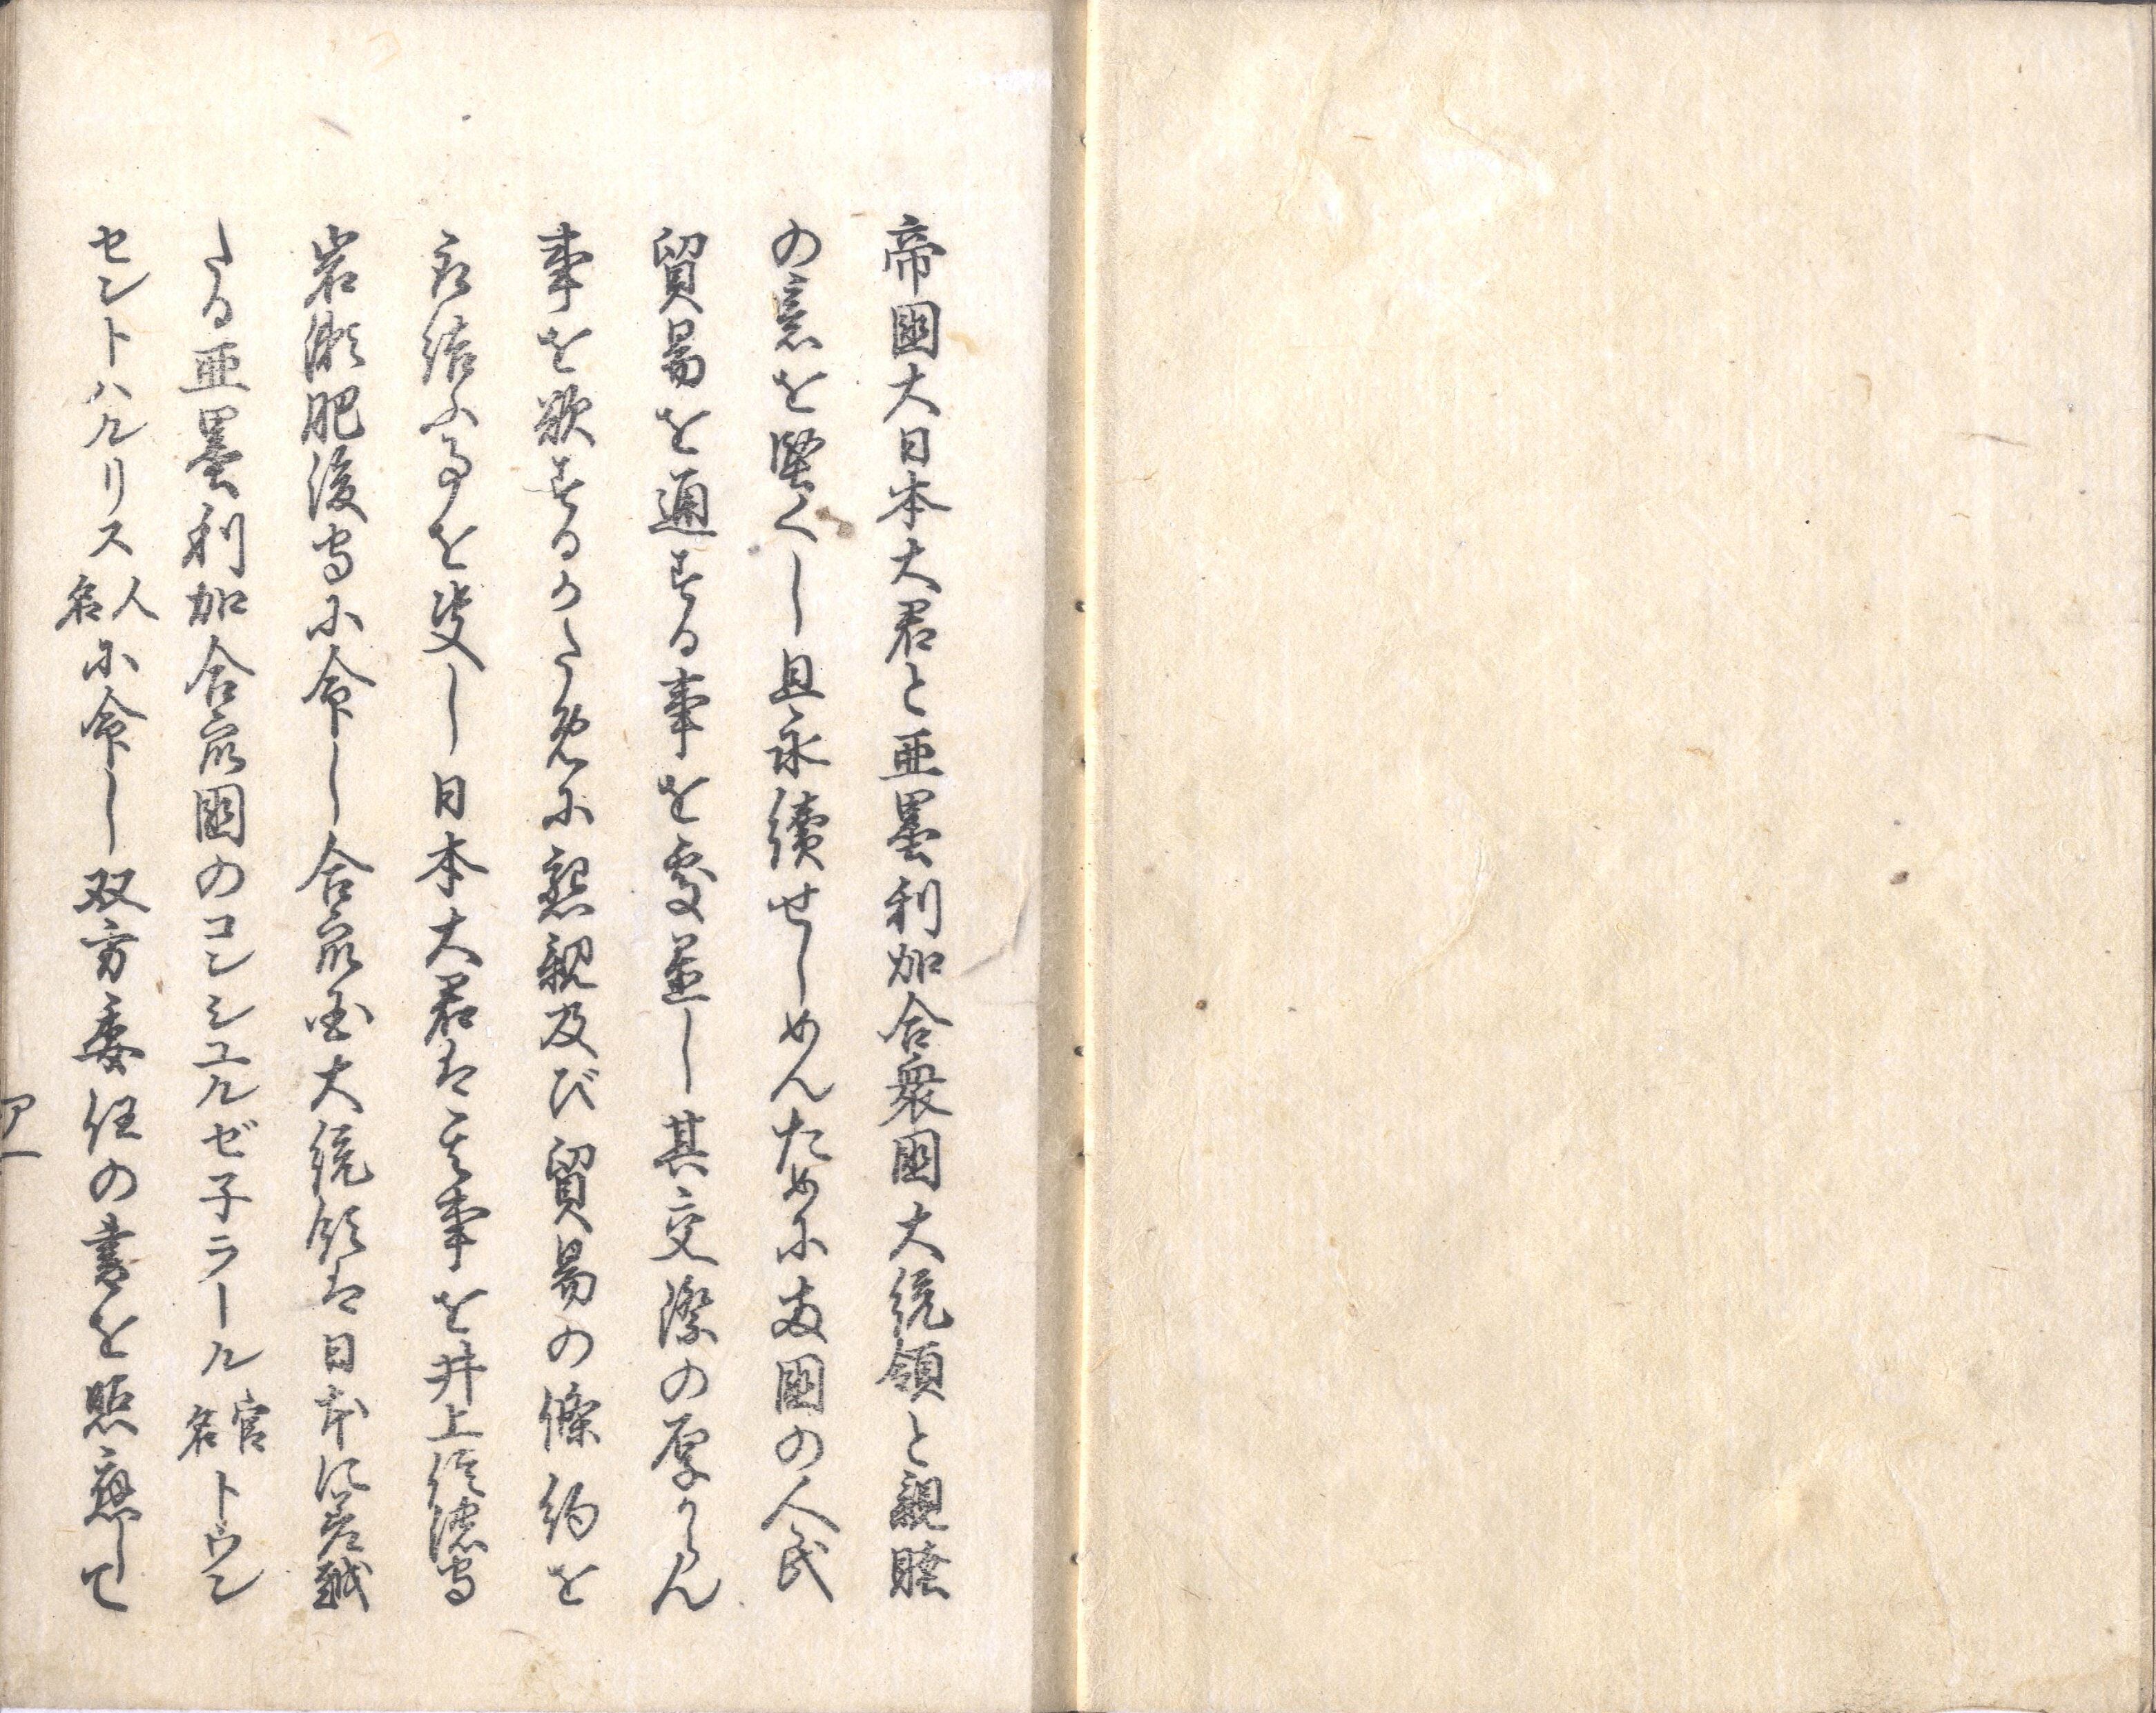 帝國大日本大君と亜墨利加合衆國大統領と親睦
の意を堅くし且永續せしめんために両国の人民
貿易を通する事を處置し其交際の厚からん
事を欲するかため尓懇親及び貿易の條約を
取結ふ事を決し日本大君は其事を井上信濃守
岩瀬肥後守に命し合衆国大統領は日本に差越
たる亜墨利加合衆國のコンシユルゼ子ラール官名トウン
セントハルリス人名に命し双方委任の書を照應して
アー